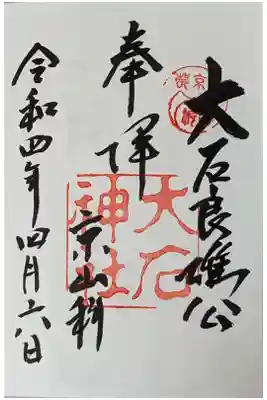 大石良雄公
奉拝
京山科
大石神社
令和四年四月六日